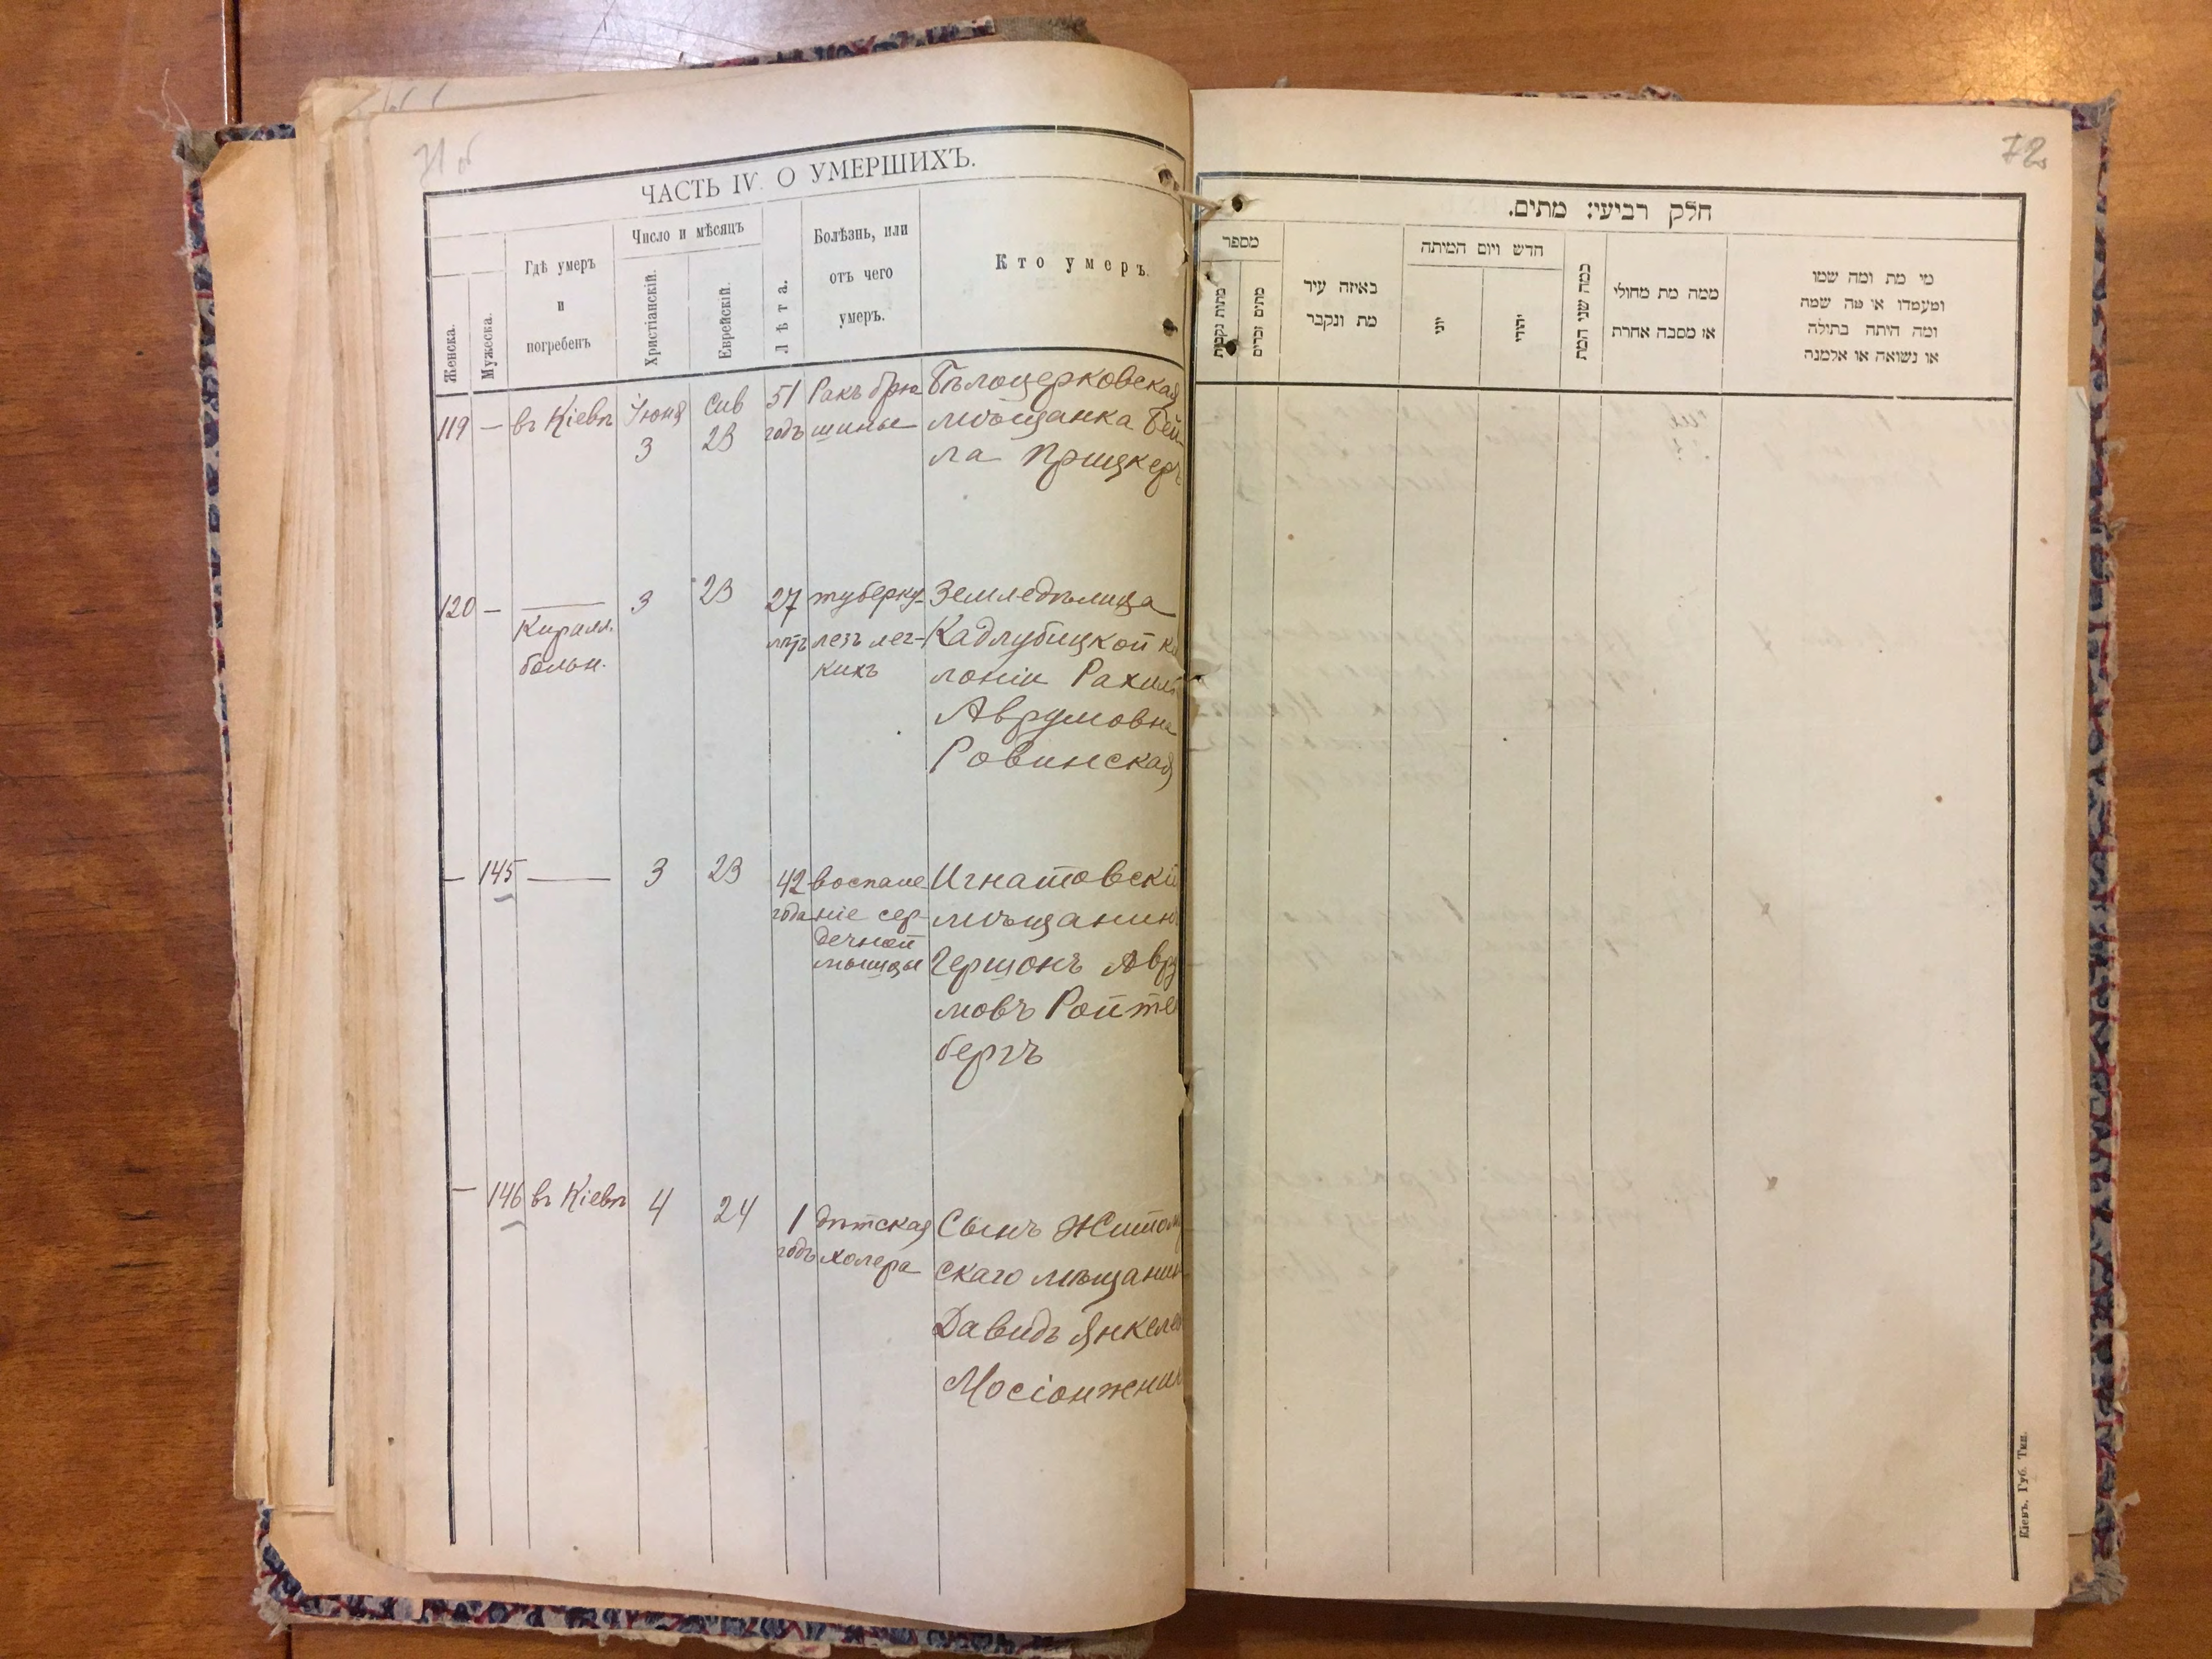 71 об
ЧАСТЬ IV. О УМЕРШИХЪ.
Женска.
Мужеска.
Гдѣ умеръ
и
погребенъ
Число и мѣсяцъ
Христіанскій.
Еврейскій.
Лѣта.
Болѣзнь, или
отъ чего
умеръ.
Кто умеръ.
119 — въ Кіевѣ Іюня 3 Сив 23 51 годъ
Ракъ брю
шины
Бѣлоцерковская
мѣщанка Бей
ла Прицкеръ
120 — —— 3 23 27 лѣтъ
Кирилл.
больн.
туберку-
лезъ лег-
кихъ
Земледѣлица
Кадлубицкой ко
лоніи Рахиль
Аврумовна
Ровинская
— 145 —— 3 23 42 года
воспале
ніе сер-
дечной
мышцы
Игнатовскій
мѣщанинъ
Гершонъ Авру
мовъ Ройте
бергъ
— 146 въ Кіевѣ 4 24 1 годъ
дѣтская
холера
Сынъ Житом
скаго мѣщанин
Давидъ Янкеле
Мосіонжник
72
חלק רביעי: מתים.
מספר
מתות נקבות
מתים זכרים
באיזה עיר
מת ונקבר
חדש ויום המיתה
יוני
יהודי
כמה שני המת
ממה מת מחולי
או מסבה אחרת
מי מת ומה שמו
ומעמדו או מה שמה
ומה היתה בתולה
או נשואה או אלמנה
Кіевъ. Губ. Тип.